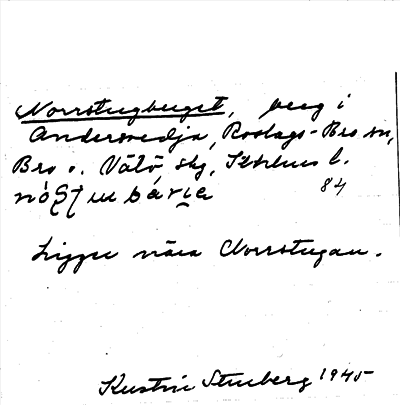 Norrstugberget, berg i
Andersvedja, Roslags-Bro sn,
Bro o. Vätö skg, Sthlms l.
84
Ligger nära Norrstugan.
Kerstin Stenberg 1945